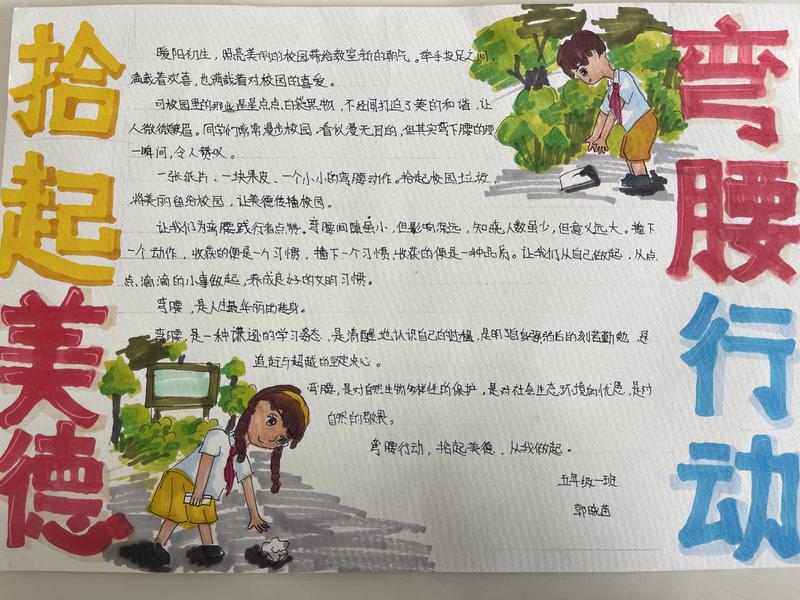 拾起美德
弯腰行动
暖阳初生，照亮美丽的校园带给教室新的朝气。举手投足之间，
满载着欢喜，也满载着对校园的喜爱。
可校园里的那些星星点点，白袋果物，不经间打迫了美的和谐，让
人微微皱眉。同学们常常漫步校园，看似漫无目的，但其实弯下腰的那
一瞬间，令人赞叹。
一张纸片、一块果皮、一个小小的弯腰动作。拾起校园垃圾，
将美丽留给校园，让美德传播校园。
让我们为弯腰践行者点赞。弯腰间虽小，但影响深远，知晓人数虽少，但意义远大。播下
一个动作，收获的便是一个习惯，播下一个习惯，收获的便是一种品质。让我们从自己做起，从点
点滴滴的小事做起，养成良好的文明习惯。
弯腰，是人生最华丽的转身。
弯腰，是一种谦逊的学习姿态，是清醒地认识自己的，是明自的刻苦勤勉，是
追赶与超越的坚定决心。
弯腰，是对自然生物多样性的保护，是对社会生态环境的忧思，是对
自然的敬畏。
弯腰行动，拾起美德，从我做起。
五年级一班
郭晓茵